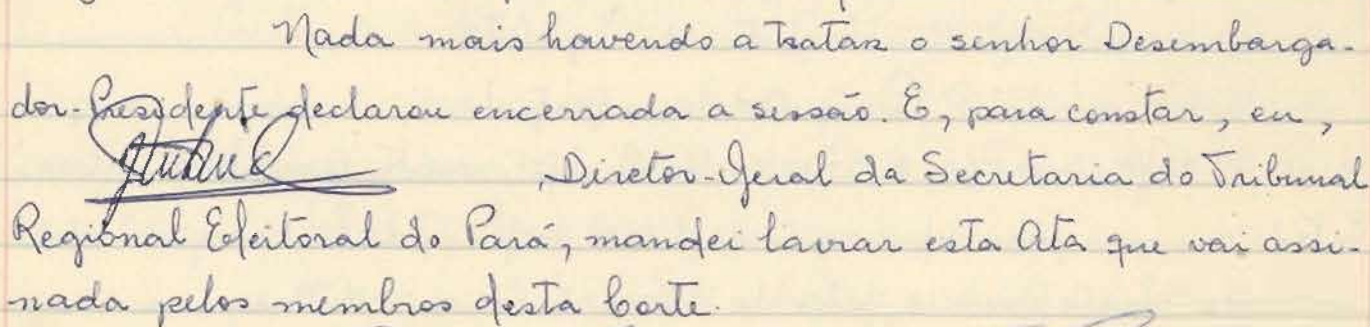 Nada mais havendo a tratar o senhor Desembarga-
dor-Presidente declarou encerrada a sessão. E, para constar, eu,
, Diretor-Geral da Secretaria do Tribunal
Regional Eleitoral do Pará, mandei lavrar esta Ata que vai assi-
nada pelos membros desta Corte.